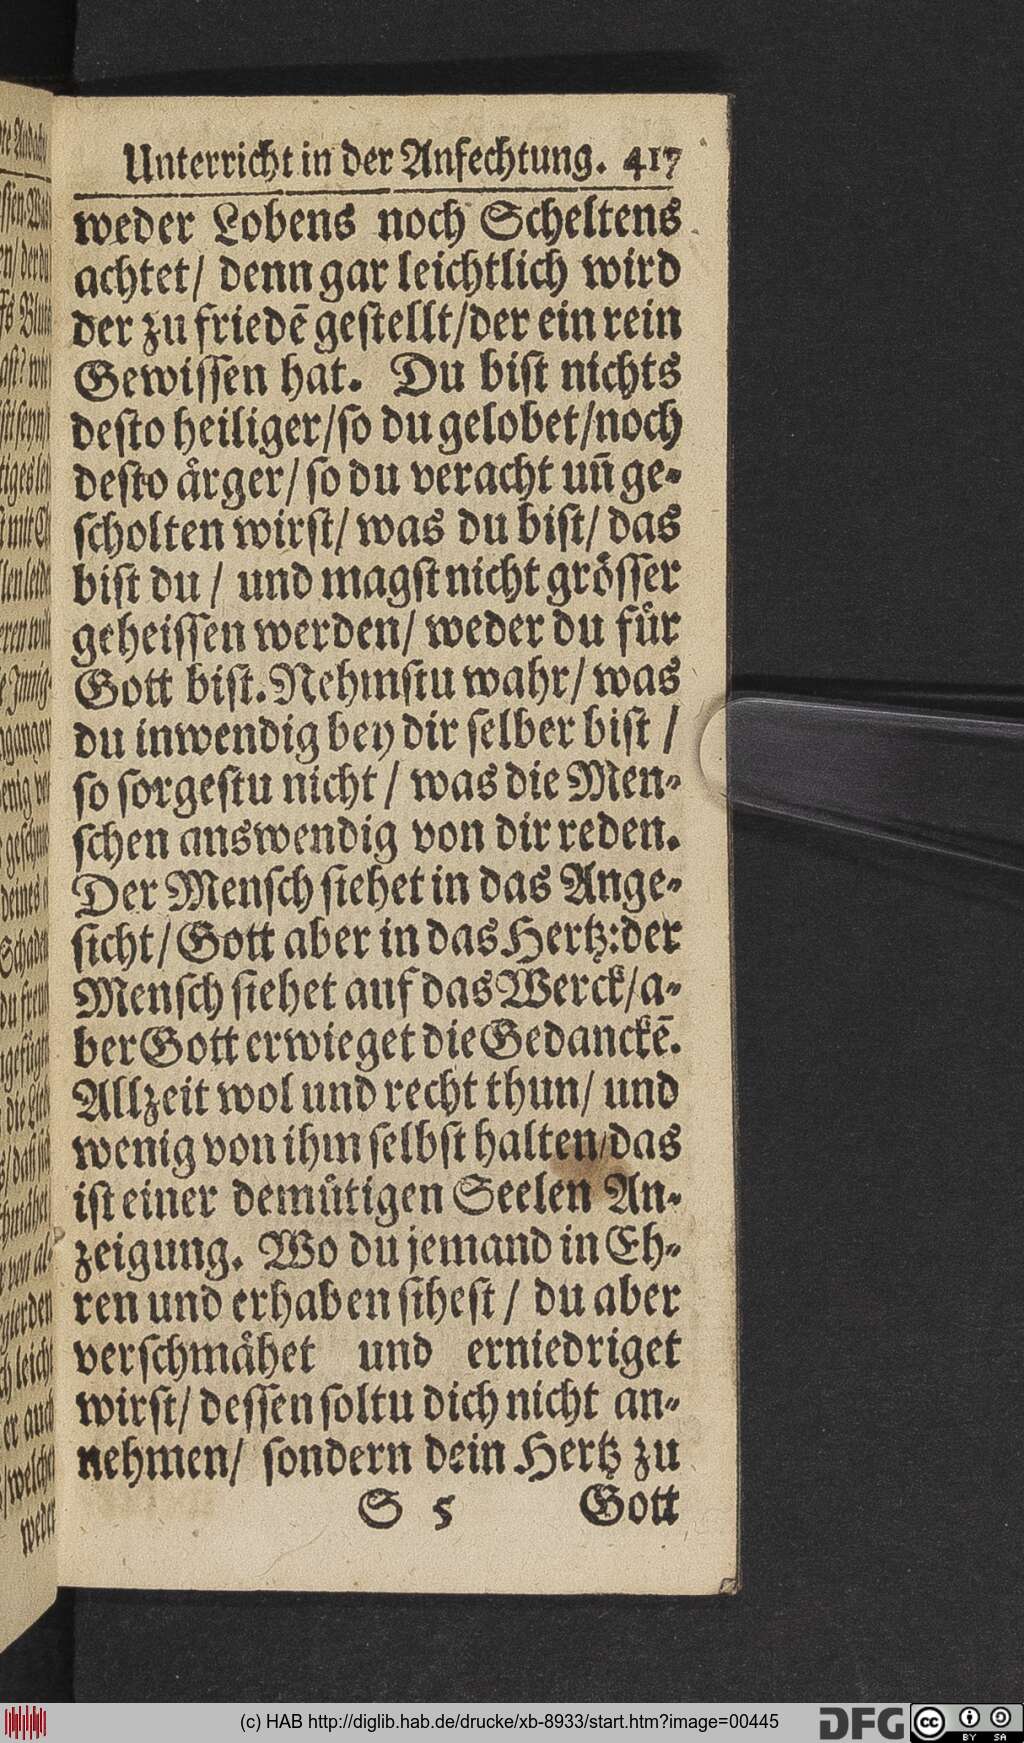 Unterricht in der Anfechtung. 417
weder Lobens noch Scheltens
achtet/ denn gar leichtlich wird
der zu friedē gestellt/der ein rein
Gewissen hat. Du bist nichts
desto heiliger/so du gelobet/noch
desto aͤrger/ so du veracht un̄ ge-
scholten wirst/ was du bist/ das
bist du / und magst nicht groͤsser
geheissen werden/ weder du fuͤr
Gott bist. Nehmstu wahr/ was
du inwendig bey dir selber bist /
so sorgestu nicht / was die Men-
schen answendig von dir reden.
Der Mensch siehet in das Ange-
sicht/ Gott aber in das Hertz: der
Mensch siehet auf das Werck/a-
ber Gott erwieget die Gedanckē.
Allzeit wol und recht thun/ und
wenig von ihm selbst halten/das
ist einer demuͤtigen Seelen An-
zeigung. Wo du jemand in Eh-
ren und erhaben sihest / du aber
verschmaͤhet und erniedriget
wirst/ dessen soltu dich nicht an-
nehmen/ sondern dein Hertz zu
S 5 Gott
(c) HAB http://diglib.hab.de/drucke/xb-8933/start.htm?image=00445
DFG cc BY SA